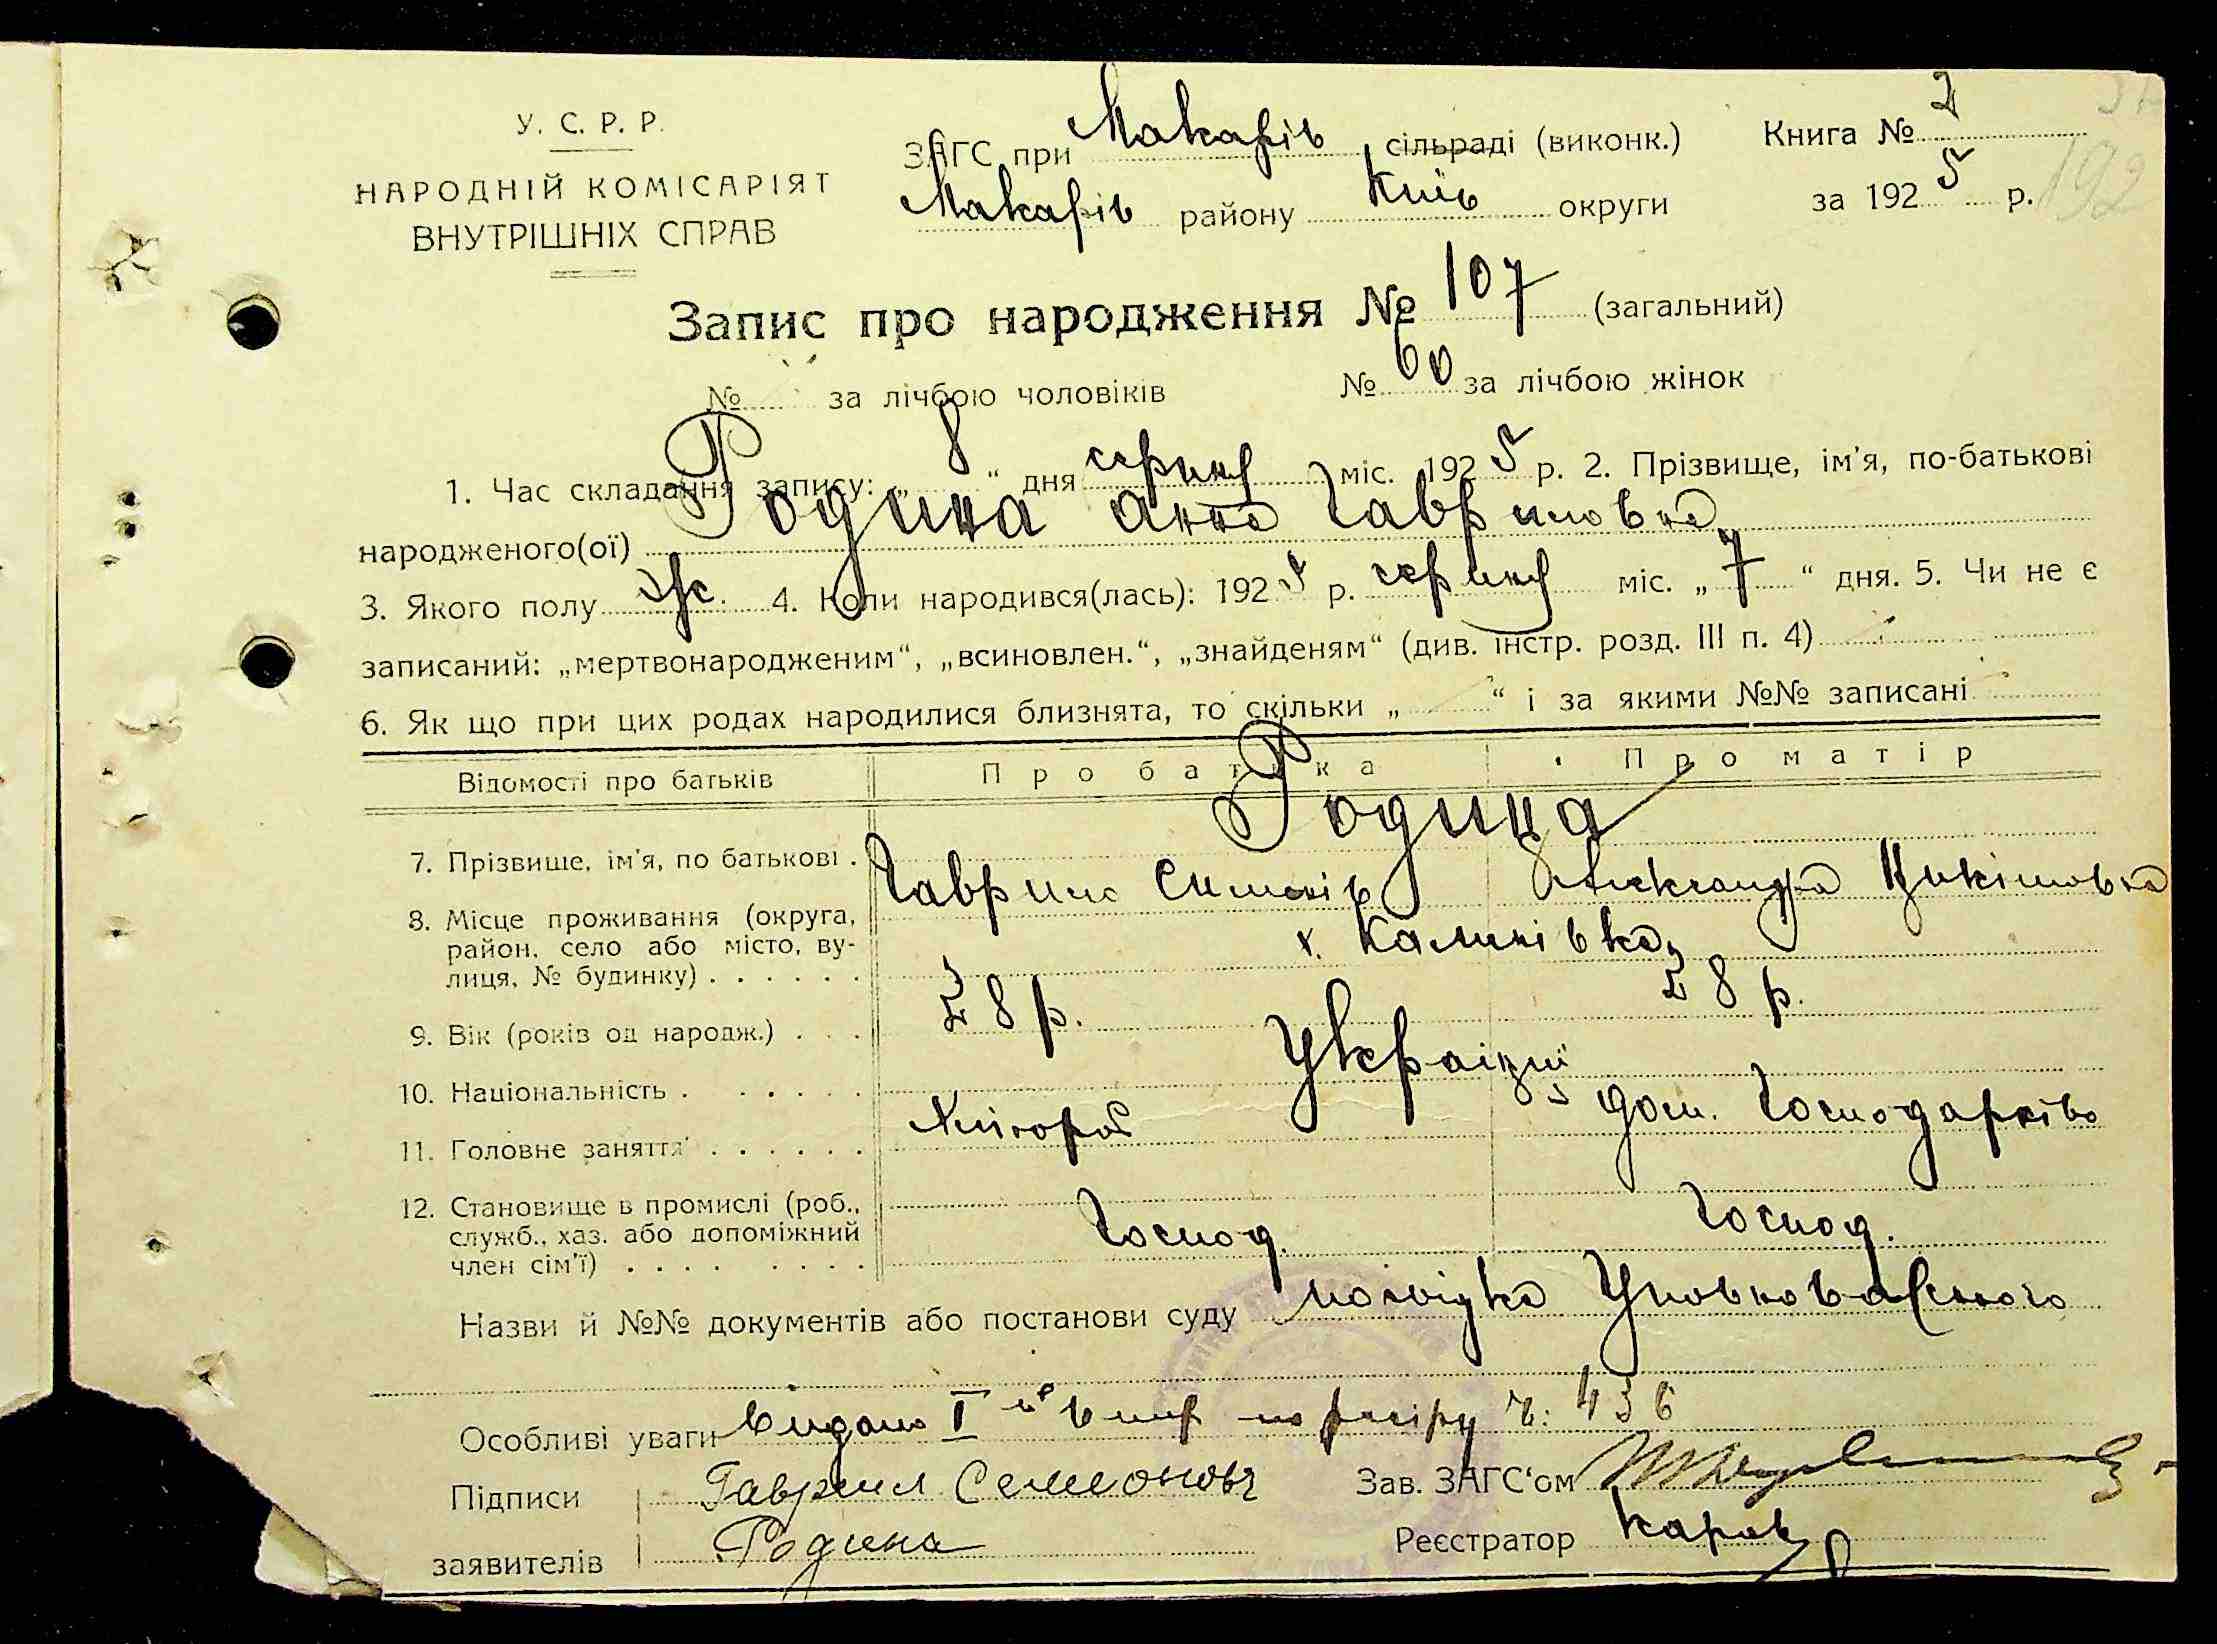 У. С. Р. Р.
НАРОДНІЙ КОМІСАРІЯТ
ВНУТРІШНІХ СПРАВ
ЗАГС при Макарів сільраді (виконк.) Книга № 2
Макарів району Київ округи за 1925 р.
192
Запис про народження № 107 (загальний)
№ за лічбою чоловіків № 60 за лічбою жінок
1. Час складання запису: „ 8 “ дня серпня міс. 1925 р. 2. Прізвище, ім'я, по-батькові
народженого(ої) Родина Анна Гавриловна
3. Якого полу ж. 4. Коли народився(лась): 1925 р. серпня міс. „ 7 “ дня. 5. Чи не є
записаний: „мертвонародженим“, „всиновлен.“, „знайденям“ (див. інстр. розд. III п. 4)
6. Як що при цих родах народилися близнята, то скільки „ “ і за якими №№ записані
Відомості про батьків Про батька Про матір
Родина
7. Прізвище, ім'я, по батькові . Гаврило Александра
8. Місце проживання (округа, район, село або місто, ву-
лиця, № будинку) . . . . . . х. Калинівка
9. Вік (років од народж.) . . . 28 р. 28 р.
10. Національність . . . . . . Україн
11. Головне заняття . . . . . . Хлібороб дом. господарство
12. Становище в промислі (роб.,
служб., хаз. або допоміжний
член сім'ї) . . . . . . . . Господ. Господ.
Назви й №№ документів або постанови суду посвідка
Особливі уваги Видано I по реєстру ч: 436
Підписи Гавриил Семионовъ Зав. ЗАГС'ом
заявителів Родина Реєстратор